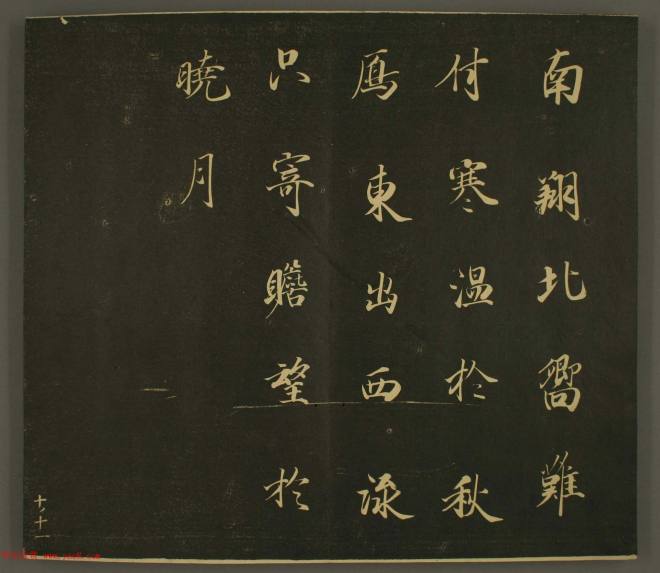 南翔北嚮難
付寒温於秋
鳫東出西流
只寄瞻望於
曉月
十ノ十一